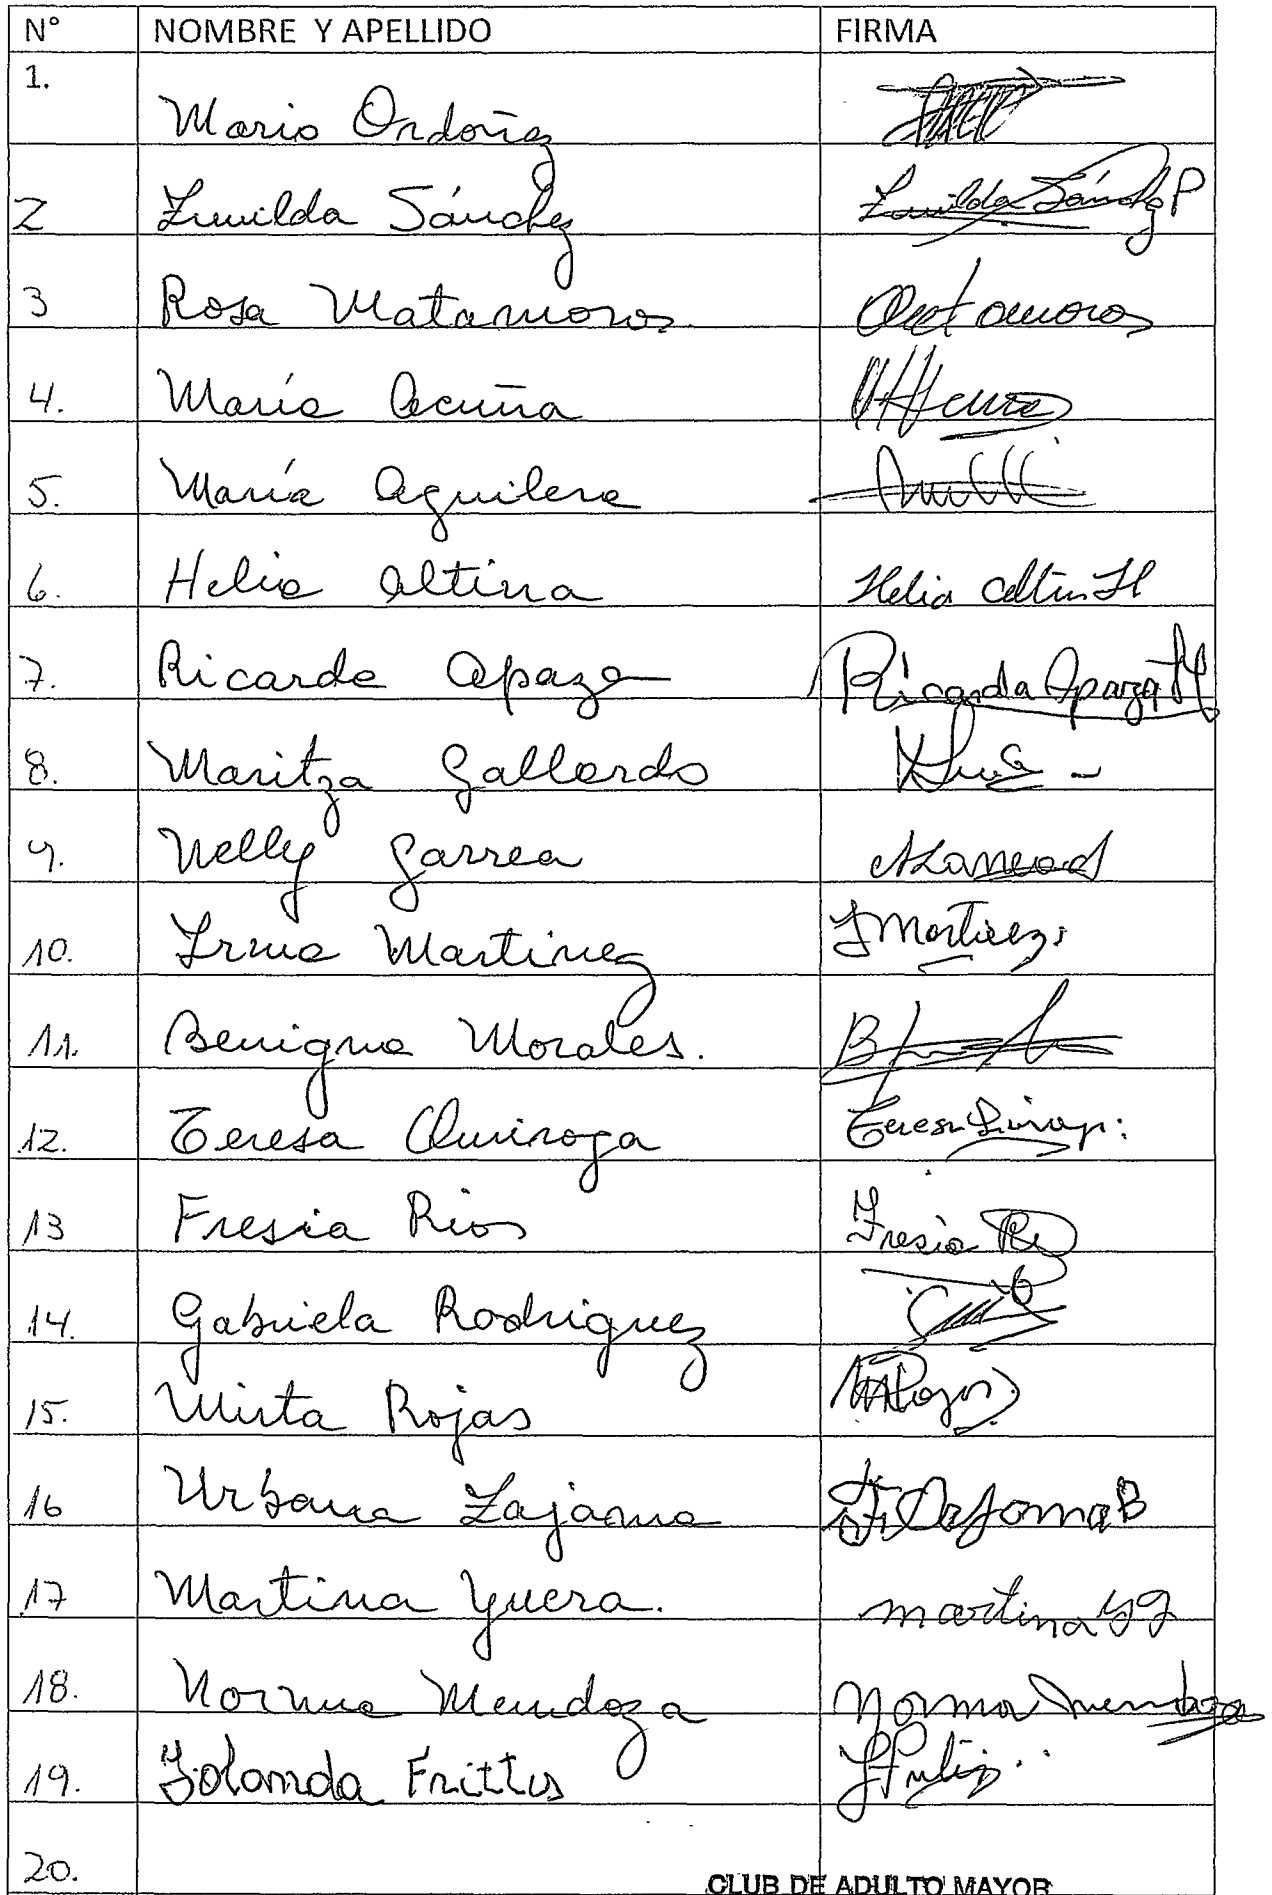 N° NOMBRE Y APELLIDO FIRMA
1. Mario Ordoñez
2 Luvilda Sánchez Luvilda Sánchez P
3 Rosa Matamoros
4. María Acuña
5. María Aguilera
6. Helia Altina Helia
7. Ricarda Apaza Ricarda Apaza H
8. Maritza Gallardo
9. Nelly Garrea
10. Irma Martinez J Martinez
11. Benigna Morales.
12. Teresa Quiroga Teresa
13 Fresia Rios Fresia
14. Gabriela Rodriguez
15. Mirta Rojas MRojas
16 Urbana Lajama
17 Martina Yuera. martina
18. Norma Mendoza Norma Mendoza
19. Yolanda Frittis
20.
CLUB DE ADULTO MAYOR